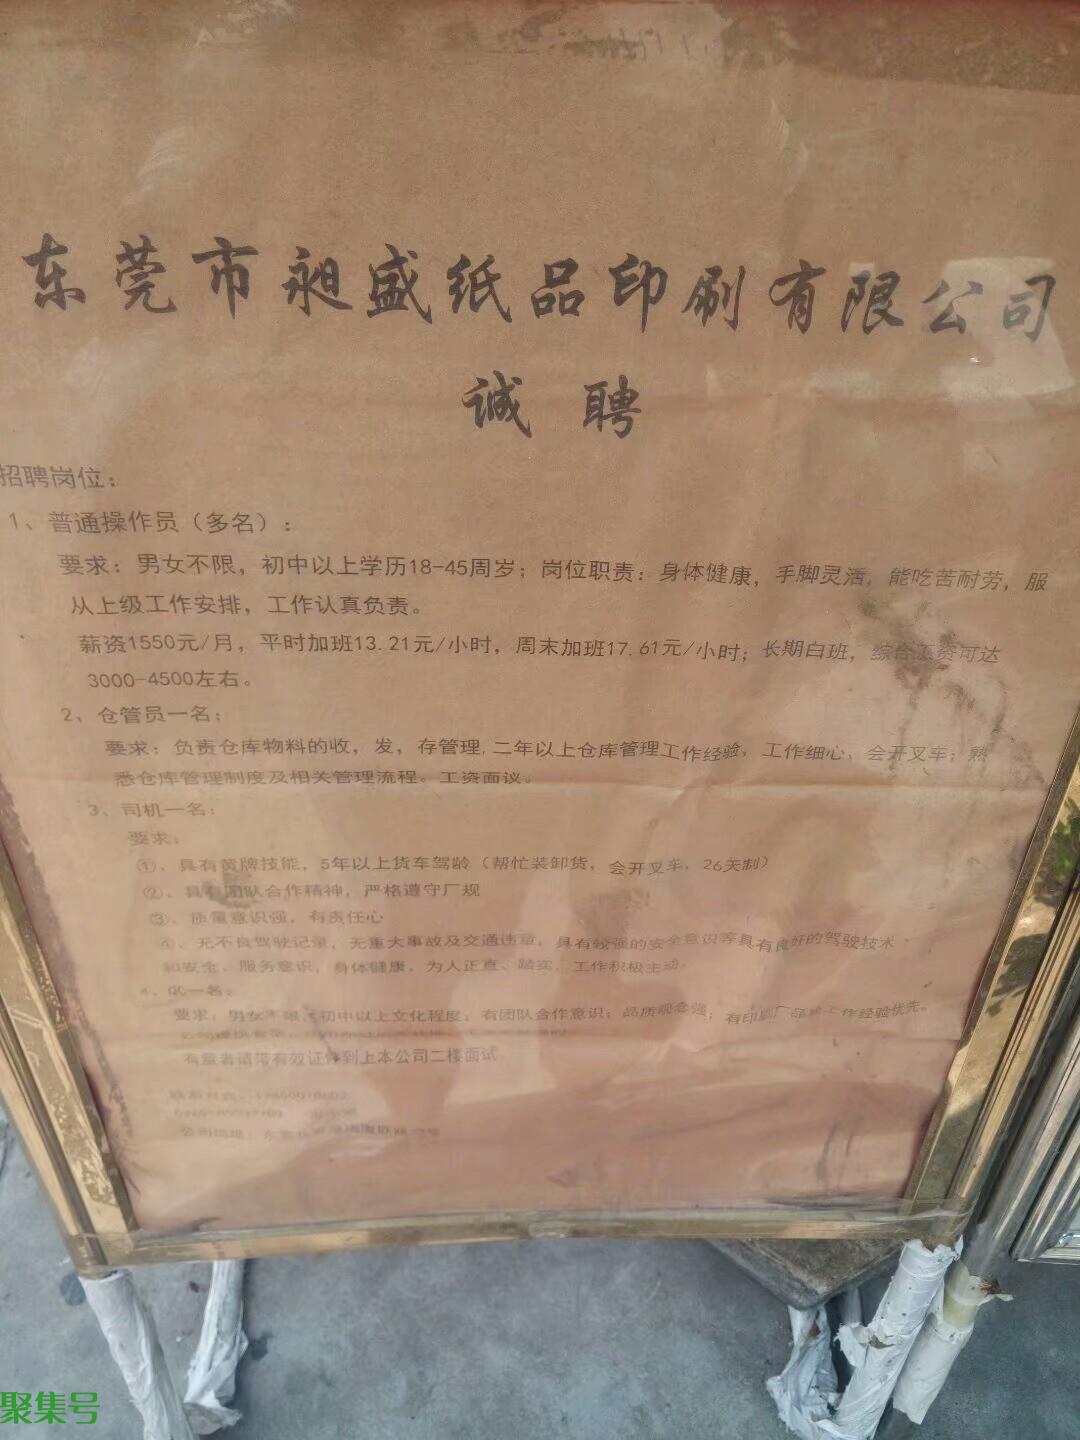 东莞市昶盛纸品印刷有限公司
诚聘
招聘岗位：
1、普通操作员（多名）：
要求：男女不限，初中以上学历18-45周岁；岗位职责：身体健康，手脚灵活，能吃苦耐劳，服
从上级工作安排，工作认真负责。
薪资1550元/月，平时加班13.21元/小时，周末加班17.61元/小时；长期白班，综合工资可达
3000-4500左右。
2、仓管员一名：
要求：负责仓库物料的收，发，存管理，二年以上仓库管理工作经验，工作细心，会开叉车；熟
悉仓库管理制度及相关管理流程。工资面议。
3、司机一名：
要求：
①、具有黄牌技能，5年以上货车驾龄（帮忙装卸货，会开叉车，26天制）
②、具有团队合作精神，严格遵守厂规
③、质量意识强，有责任心
④、无不良驾驶记录，无重大事故及交通违章，具有较强的安全意识等具有良好的驾驶技术
和安全、服务意识，身体健康，为人正直、踏实，工作积极主动。
4、QC一名：
要求：男女不限，初中以上文化程度；有团队合作意识；品质观念强；有印刷厂品检工作经验优先。
有意者请带有效证件到上本公司二楼面试
公司地址：东莞
聚集号